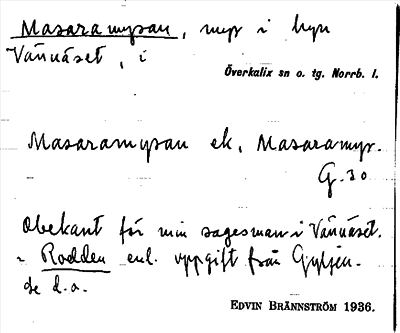 Masaramyran, myr i byn
Vännäset, i
Överkalix sn o. tg. Norrb. l.
Masaramyran ek, Masaramyr.
G. 30
Obekant för min sagesman i Vännäset.
~ Rodden enl. uppgift från Gyljen.
se d.o.
EDVIN BRÄNNSTRÖM 1936.